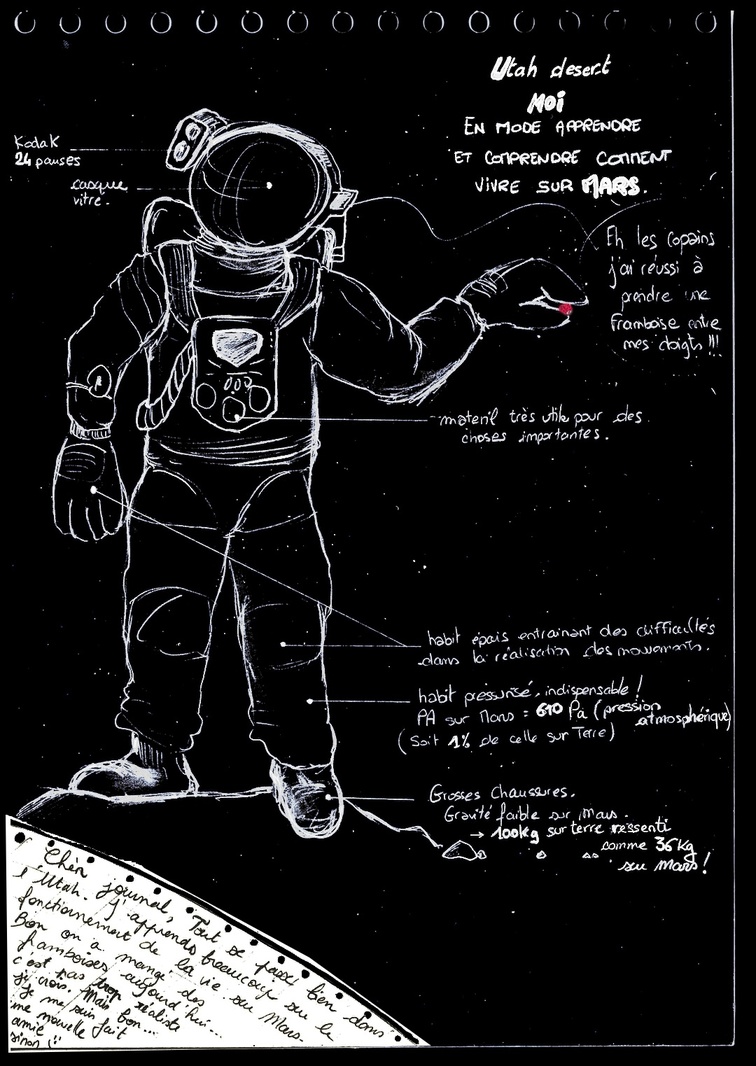 Utah desert
MOI
EN MODE APPRENDRE
ET COMPRENDRE COMMENT
VIVRE SUR MARS.
Kodak
24 pauses
casque
vitré.
Eh les copains
j'ai réussi à
prendre une
framboise entre
mes doigts !!!
materil très utile pour des
choses importantes.
habit épais entrainant des difficultés
dans la réalisation des mouvements.
habit pressurisé, indispensable !
PA sur Mars = 610 Pa (pression
atmosphérique)
(Soit 1% de celle sur Terre)
Grosses Chaussures.
Gravité faible sur Mars.
→ 100kg sur terre ressenti
comme 36kg
sur Mars !
Chèr journal, Tout se passe bien dans
l'Utah. J'apprends beaucoup sur le
fonctionnement de la vie sur Mars.
Bon on a mangé des
framboises aujourd'hui...
c'est pas trop réaliste
j'crois. Mais bon...
Je me suis fait
une nouvelle
amie
sinon !: